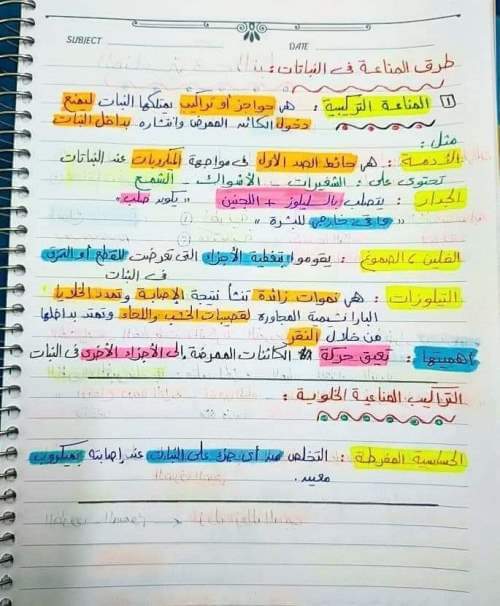 SUBJECT DATE
طرق المناعة فى النباتات :
1 المناعة التركيبية : هى حواجز أو تراكيب يمتلكها النبات لتمنع
دخول الكائن الممرض وانتشاره بداخل النبات
مثل :
الأدمة : هى حائط الصد الأول فى مواجهة المكروبات عند النباتات
تحتوى على : الشعيرات - الأشواك - الشمع
الجدار : يتصلب بالسليلوز + اللجنين " يكون صلب "
" واقى خارجى للبشرة "
الفلين ، الصموغ : يقوموا بتغطية الأجزاء التى تعرضت للقطع أو التمزق
فى النبات
التيلوزات : هى نموات زائدة تنشأ نتيجة الإصابة وتمدد الخلايا
البارانشيمية المجاورة لقصيبات الخشب واللحاء وتمتد بداخلها
من خلال النقر
أهميتها : تعيق حركة الكائنات الممرضة إلى الأجزاء الأخرى فى النبات
التراكيب المناعية الخلوية :
الحساسية المفرطة : التخلص من أى جزء على النبات عند إصابته بميكروب
معين .